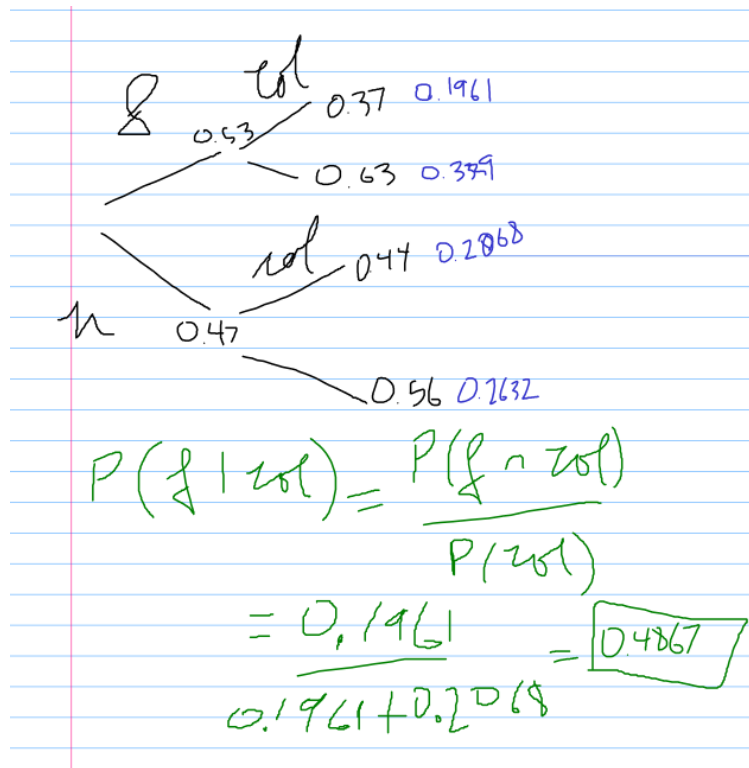 f zol
0.53 0.37 0.1961
0.63 0.339
zol 0.44 0.2068
n 0.47
0.56 0.2632
P(f | zol) = P(f ∩ zol)
P(zol)
= 0.1961 = 0.4867
0.1961+0.2068